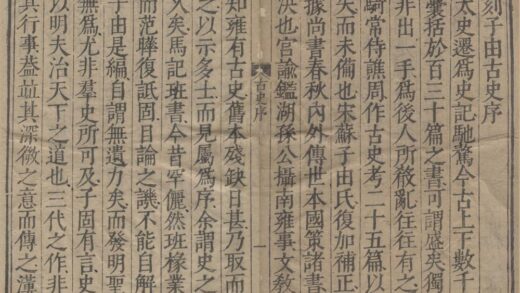 刻子由古史序
太史遷爲史記馳騖今古上下數千
括於百三十篇之書可謂盛矣獨
非出一手爲後人所殽亂徃徃有之
騎常侍譙周作古史考二十五篇以
失而未備也宋蘇子由氏復加補正
據尚書春秋內外傳世本國策諸書
決也官諭鑑湖孫公攝南雍事文教
古史序
一
知雍有古史舊本殘缺日甚乃取而
之以示多士而見屬爲序余謂史之
人矣馬記班書今昔罕儷然班椽業
而范曄復詆固目論之譏不能自解
子由是編自謂無遺力矣而發明聖
無爲尤非羣史所可及子固有言史
以明夫治天下之道也三代之作非
其行事葢竝其深微之意而傳之漢